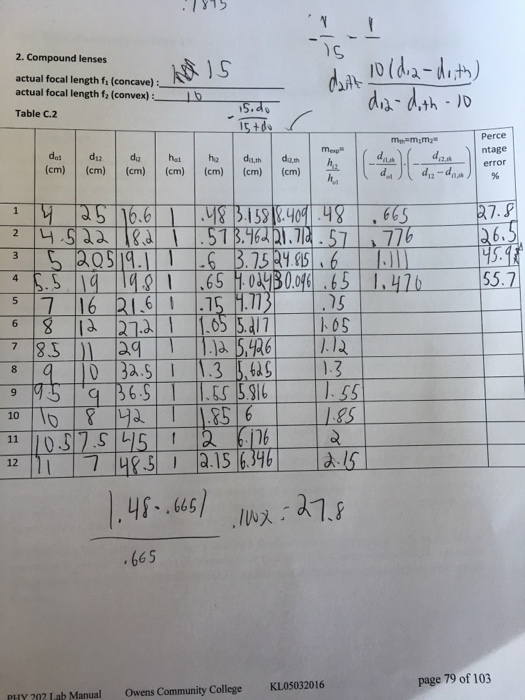 .7845
- 1/15 - 1
2. Compound lenses
actual focal length f₁ (concave) : 15
actual focal length f₂ (convex) : 10
d₂,th = 10(d₁₂-d₁,th) / d₁₂-d₁,th-10
Table C.2
- 15.do / 15+do
do₁ (cm) d₁₂ (cm) di₂ (cm) ho₁ (cm) hi₂ (cm) di1,th (cm) di2,th (cm) mexp= hi2/ho1 mth=m₁m₂= (di1,th/do1)·(di2,th/d₁₂-di1,th) Perce ntage error %
1 4 25 16.6 1 .48 3.158 18.409 .48 .665 27.8
2 4.5 22 18.2 1 .57 3.462 21.712 .57 .776 26.5
3 5 20.5 19.1 1 .6 3.75 24.815 .6 1.111 45.9
4 5.5 19 19.8 1 .65 4.024 30.096 .65 1.476 55.7
5 7 16 21.6 1 .75 4.773 .75
6 8 12 27.2 1 1.05 5.217 1.05
7 8.5 11 29 1 1.12 5.426 1.12
8 9 10 32.5 1 1.3 5.625 1.3
9 9.5 9 36.5 1 1.55 5.816 1.55
10 10 8 42 1 1.85 6 1.85
11 10.5 7.5 45 1 2 6.176 2
12 11 7 48.5 1 2.15 6.346 2.15
|.48-.665| / .665 .100% = 27.8
PHY 202 Lab Manual Owens Community College KL05032016 page 79 of 103